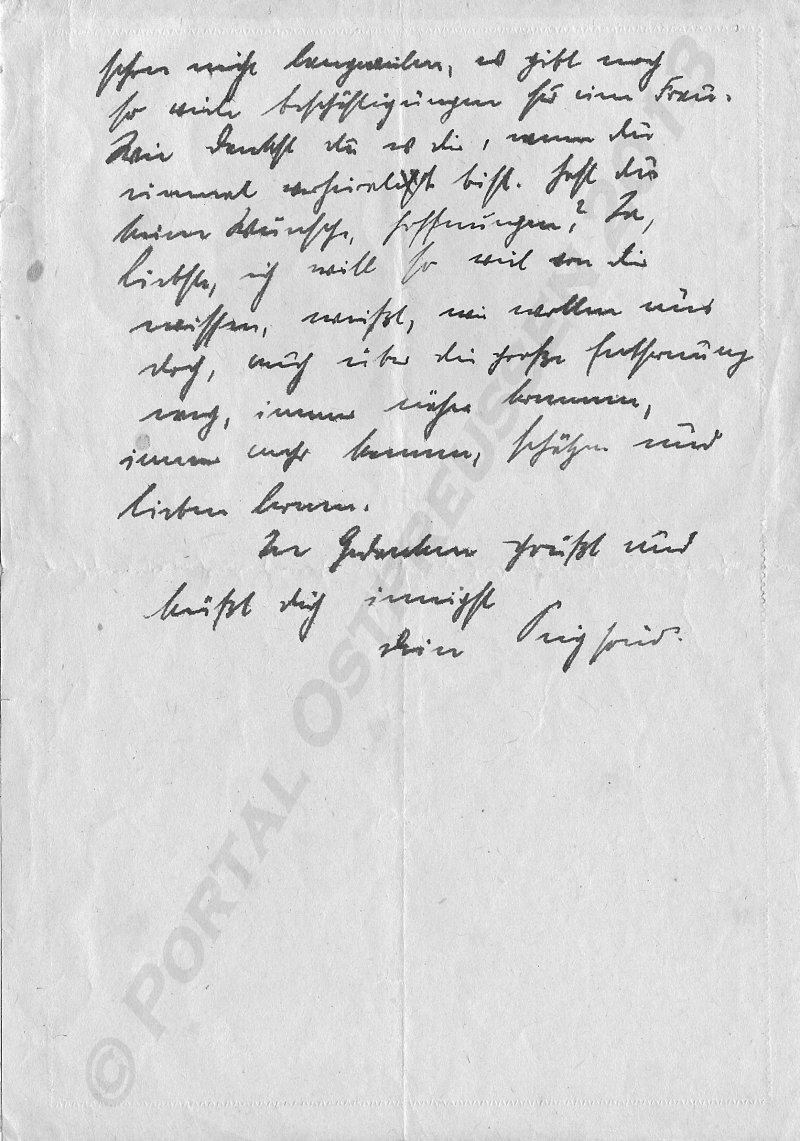 schon nicht langweilen, es gibt noch
so viele Beschäftigungen für eine Frau.
Wie denkst du es dir, wenn du
einmal verheiratet bist. Hast du
keine Wünsche, Hoffnungen? Ja,
Liebste, ich will so viel von dir
wissen, weißt, wir wollen uns
doch, auch über die große Entfernung
weg, immer näher kommen,
immer mehr kennen, schätzen und
lieben lernen.
In Gedanken grüßt und
küßt dich innigst
dein Siegfried.
© PORTAL OSTPREUSSEN 2013